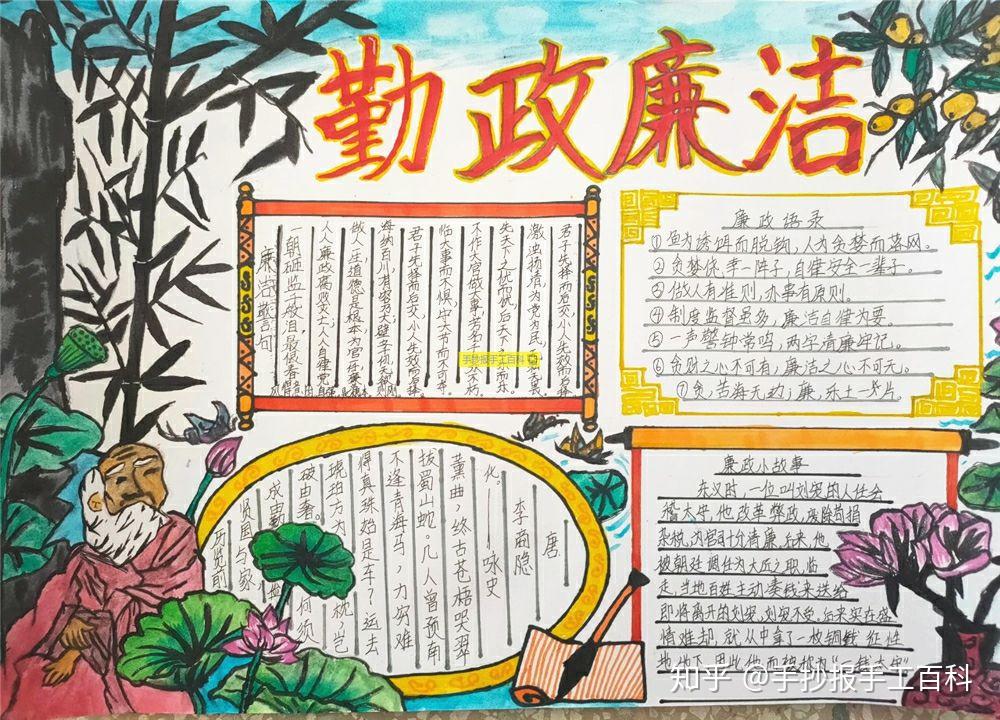 勤政廉洁
廉洁警句
一朝砸监
人人廉政腐败灭，人人自律党
做人，道德是根本，为官，
海纳百川，有容乃大，壁立千仞，无欲则刚。
君子先择而后交，小人先敌而后择。
临大事而不惧，守大节而不可夺。
不作大官做大事，
先天下之忧而忧，后天下之乐而乐。
激浊扬清，为党为民
君子先择而后交，小人先敌而后择
手抄报手工百科
廉政语录
①鱼为诱饵而脱钩，人为贪婪而落网。
②贪婪侥幸一阵子，自律安全一辈子。
③做人有准则，办事有原则。
④制度监督虽多，廉洁自律为要。
⑤一声警钟常鸣，两字清廉牢记。
⑥贪财之心不可有，廉洁之心不可无。
⑦贪，苦海无边；廉，乐土一片。
唐
李商隐
——咏史
化。
薰曲，终古苍梧哭翠
拔蜀山蛇。几人曾预南
不逢青海马，力穷难
得真珠始是车？运去
琥珀方为枕，岂
破由奢。何须
成由勤
贤国与家
历览前
廉政小故事
东汉时，一位叫刘宠的人任会
稽太守，他改革弊政，废除苛捐
杂税，为官十分清廉。后来，他
被朝廷调任为大匠之职，临
走，当地百姓主动凑钱来送给
即将离开的刘宠，刘宠不受。后来实在盛
情难却，就从中拿了一枚铜钱
他
知乎 @手抄报手工百科